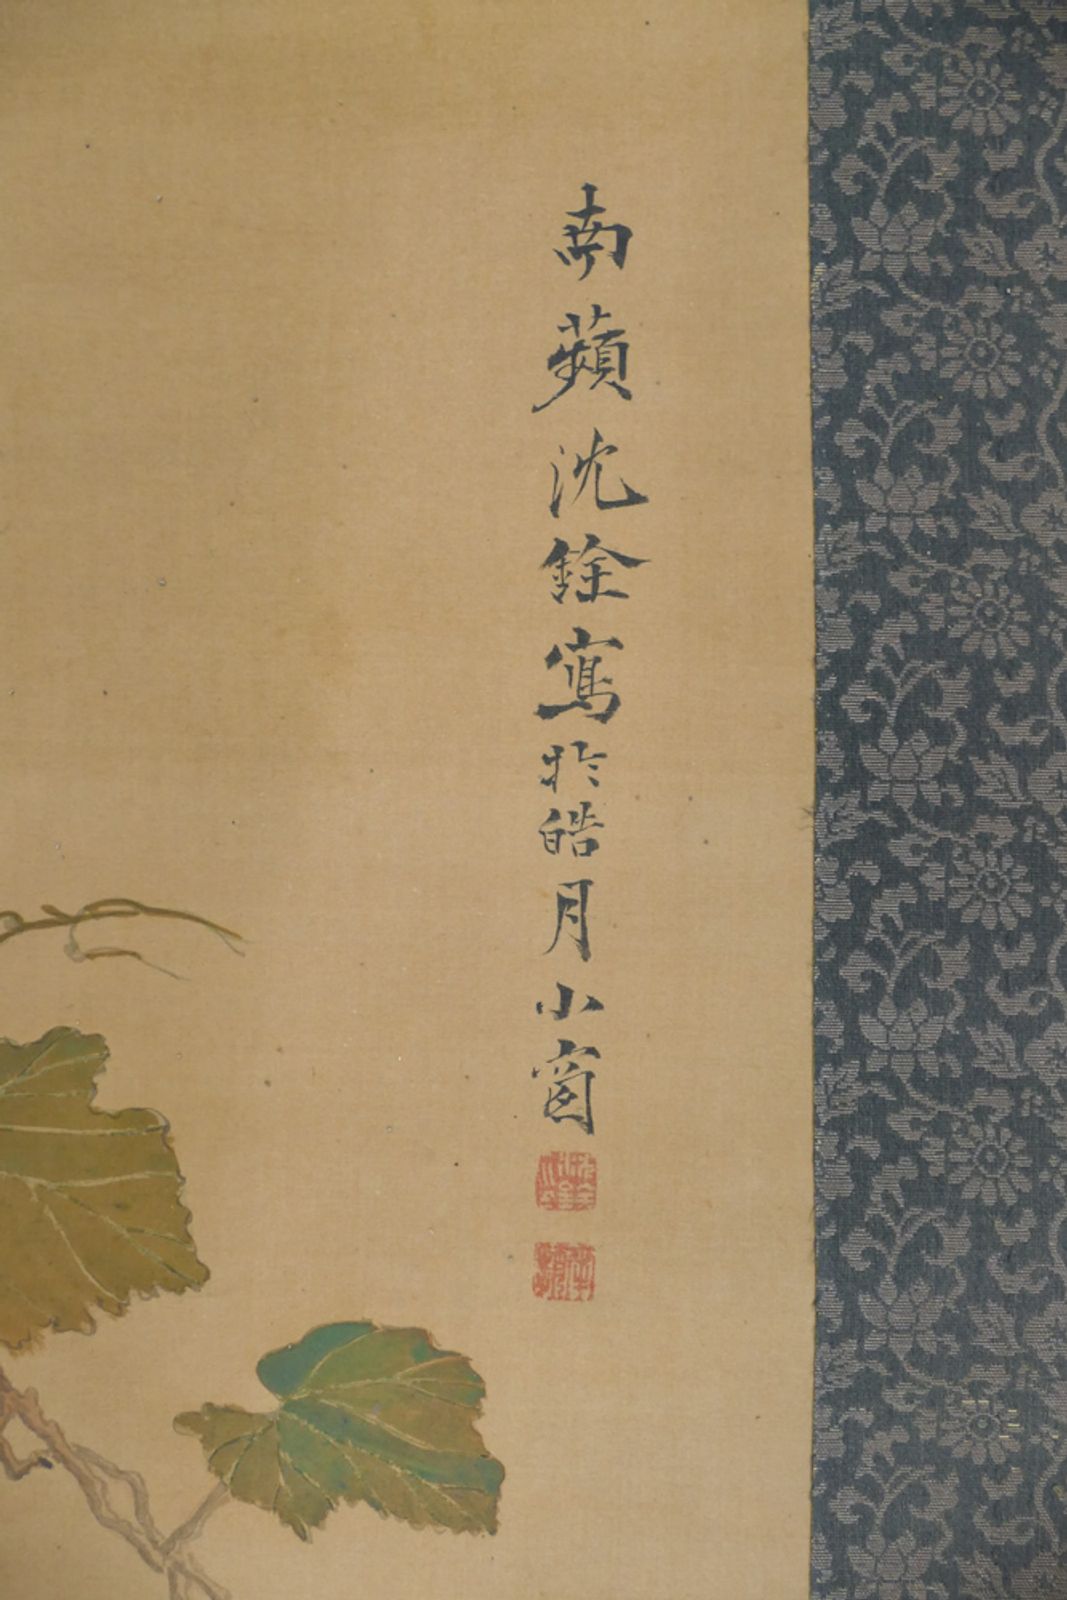 南蘋沈銓寫於皓月小窗